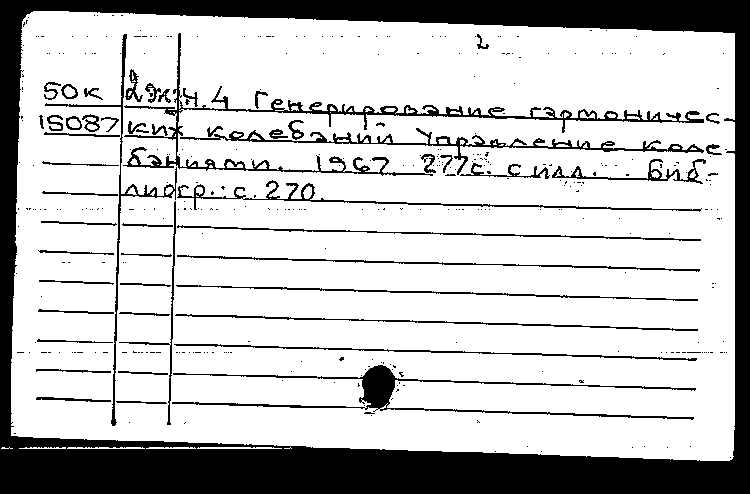 2
50к 2 эк. ч.4 Генерирование гармоничес-
15087 ких колебаний Управление коле-
баниями. 1967. 277с. с илл. . Биб-
лиогр.: с. 270.